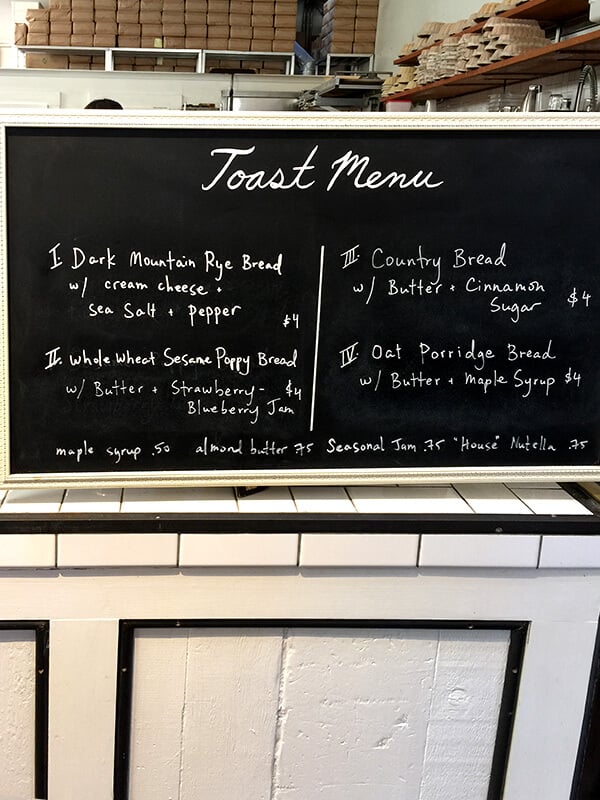 Toast Menu
I. Dark Mountain Rye Bread
w/ cream cheese +
sea Salt + pepper
$4
II. Whole Wheat Sesame Poppy Bread
w/ Butter + Strawberry- $4
Blueberry Jam
III. Country Bread
w/ Butter + Cinnamon
Sugar $4
IV. Oat Porridge Bread
w/ Butter + Maple Syrup $4
maple syrup .50 almond butter .75 Seasonal Jam .75 "House" Nutella .75